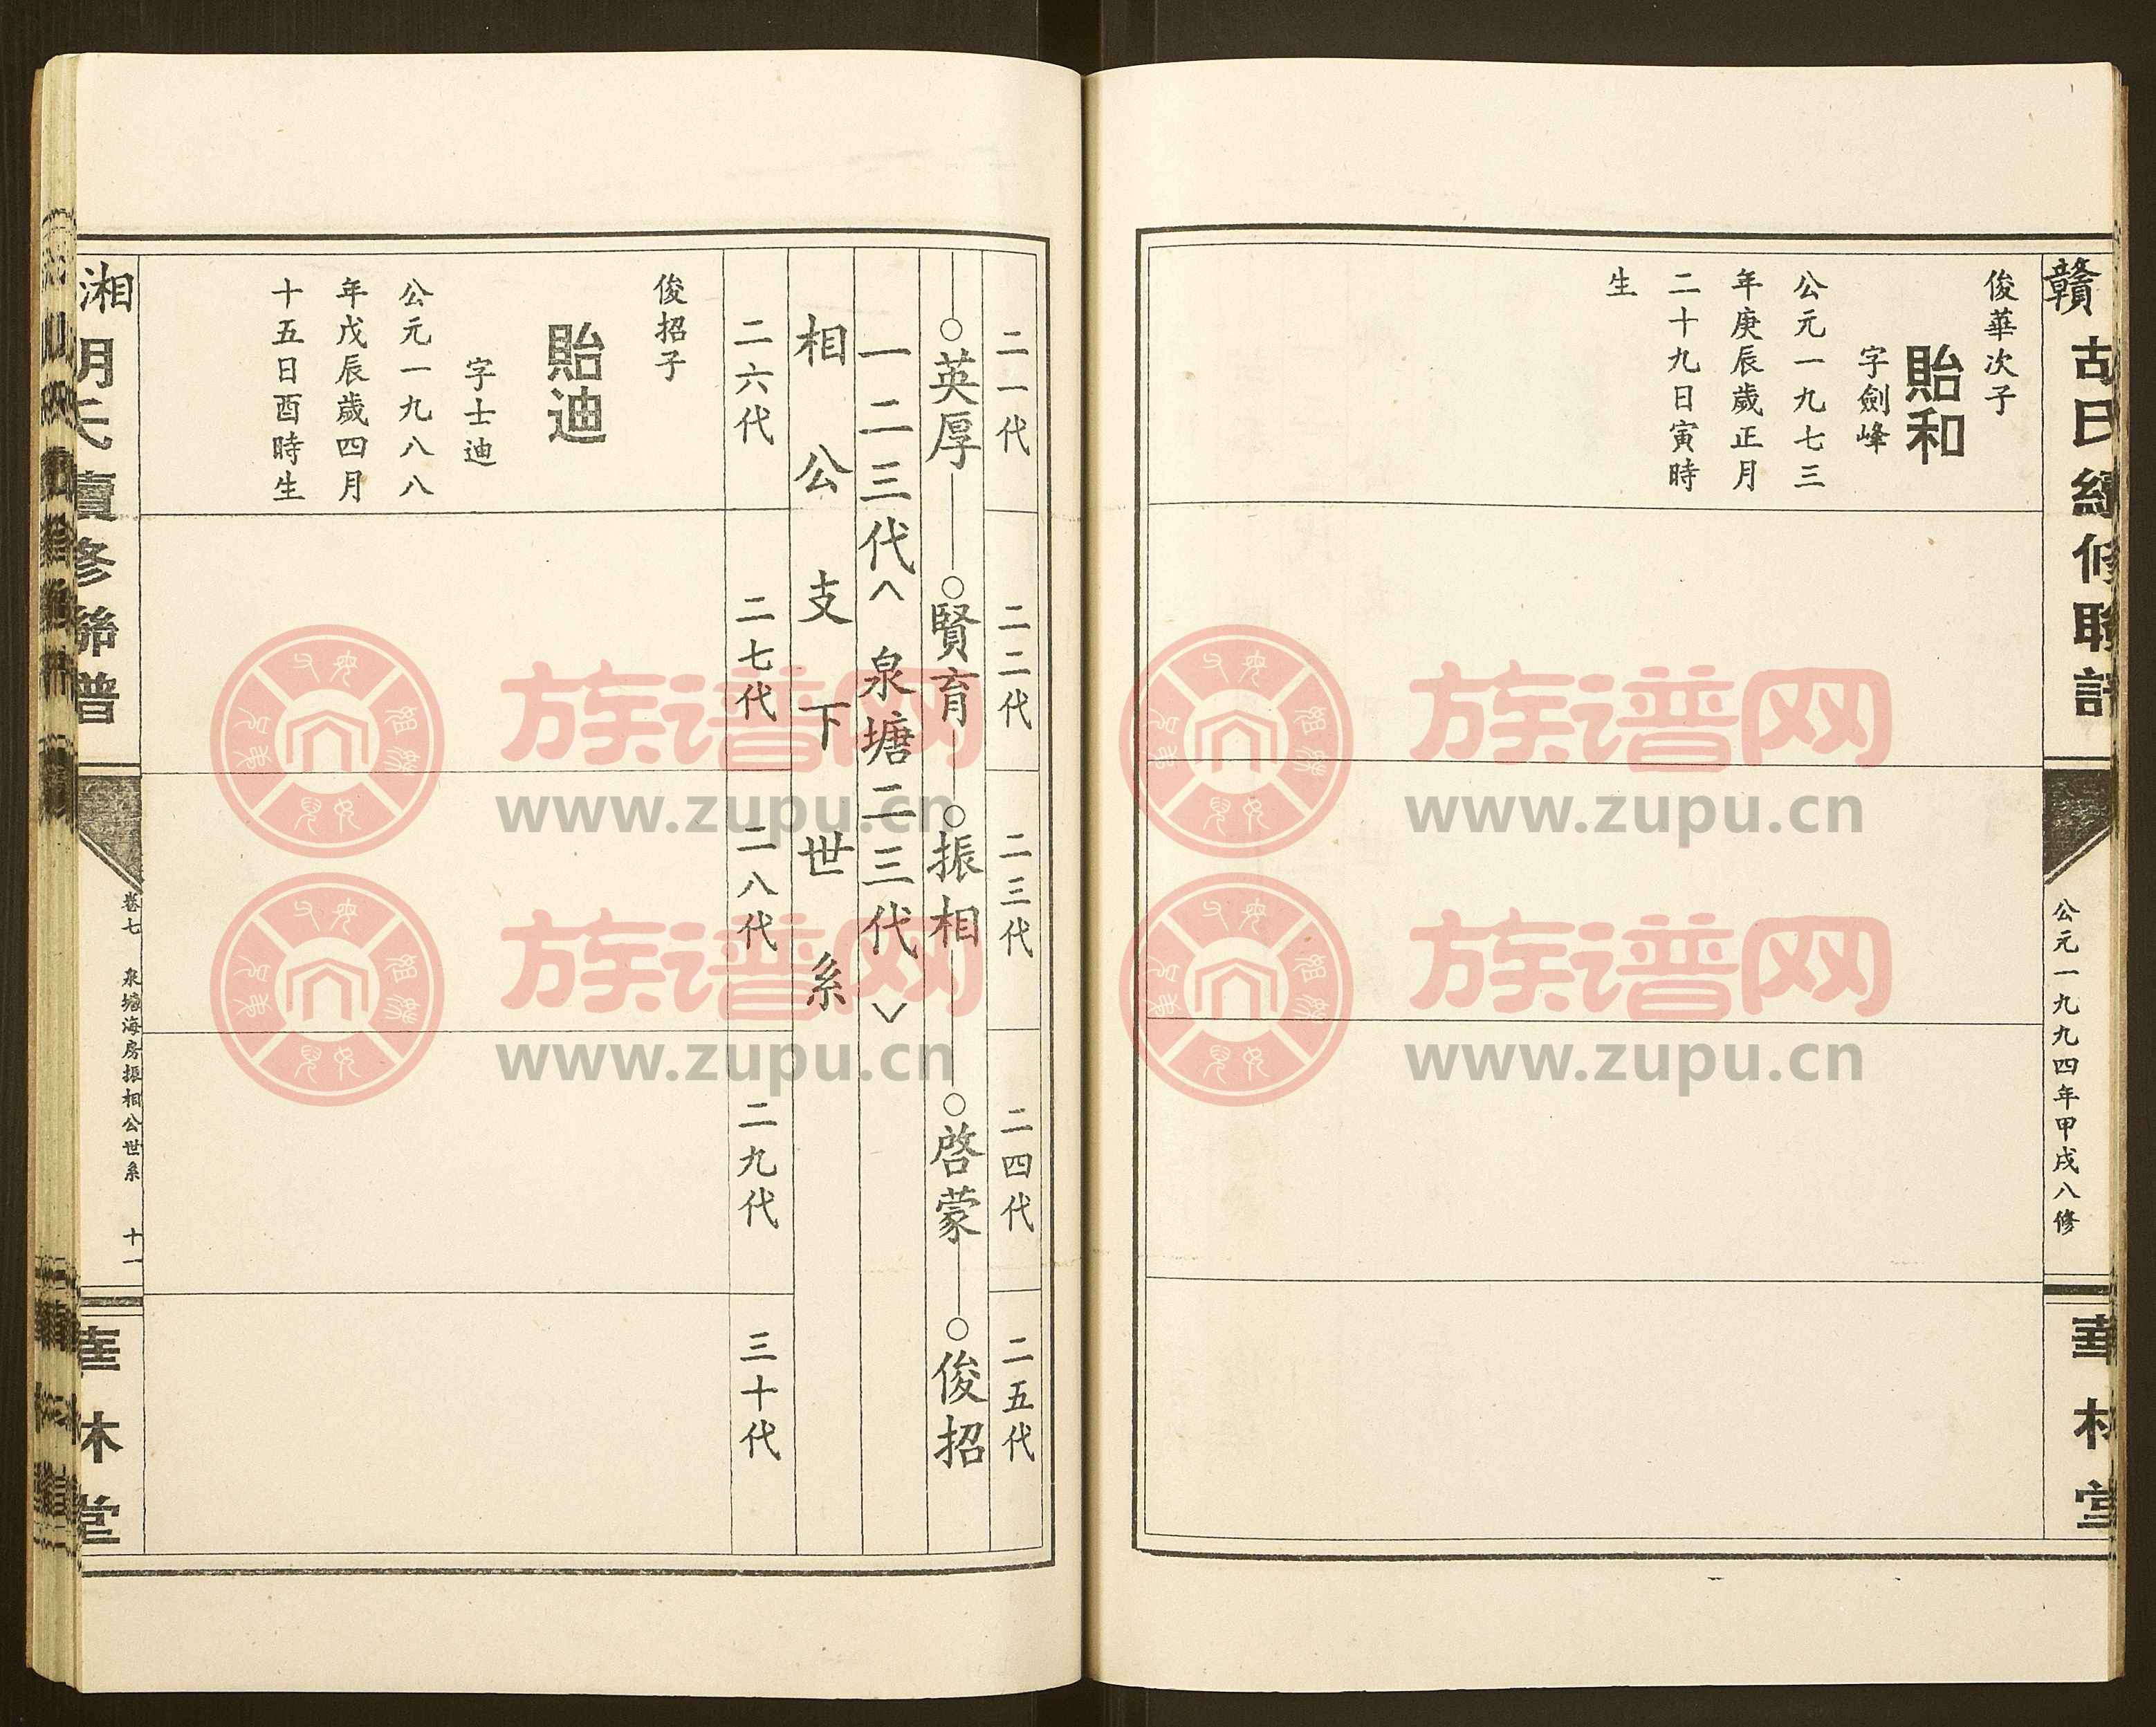 贛
胡氏續修聯譜
公元一九九四年甲戌八修
華林堂
俊華次子
貽和
字劍峰
公元一九七三
年庚辰歲正月
二十九日寅時
生
二一代
二二代
二三代
二四代
二五代
○英厚
○賢育
○振相
○啓蒙
○俊招
一二三代<泉塘二三代>
相公支下世系
二六代
二七代
二八代
二九代
三十代
俊招子
貽迪
字士迪
公元一九八八
年戊辰歲四月
十五日酉時生
湘
胡氏續修聯譜
卷七 泉塘海房振相公世系 十一
華林堂
族谱网
www.zupu.cn
族谱网
www.zupu.cn
族谱网
www.zupu.cn
族谱网
www.zupu.cn